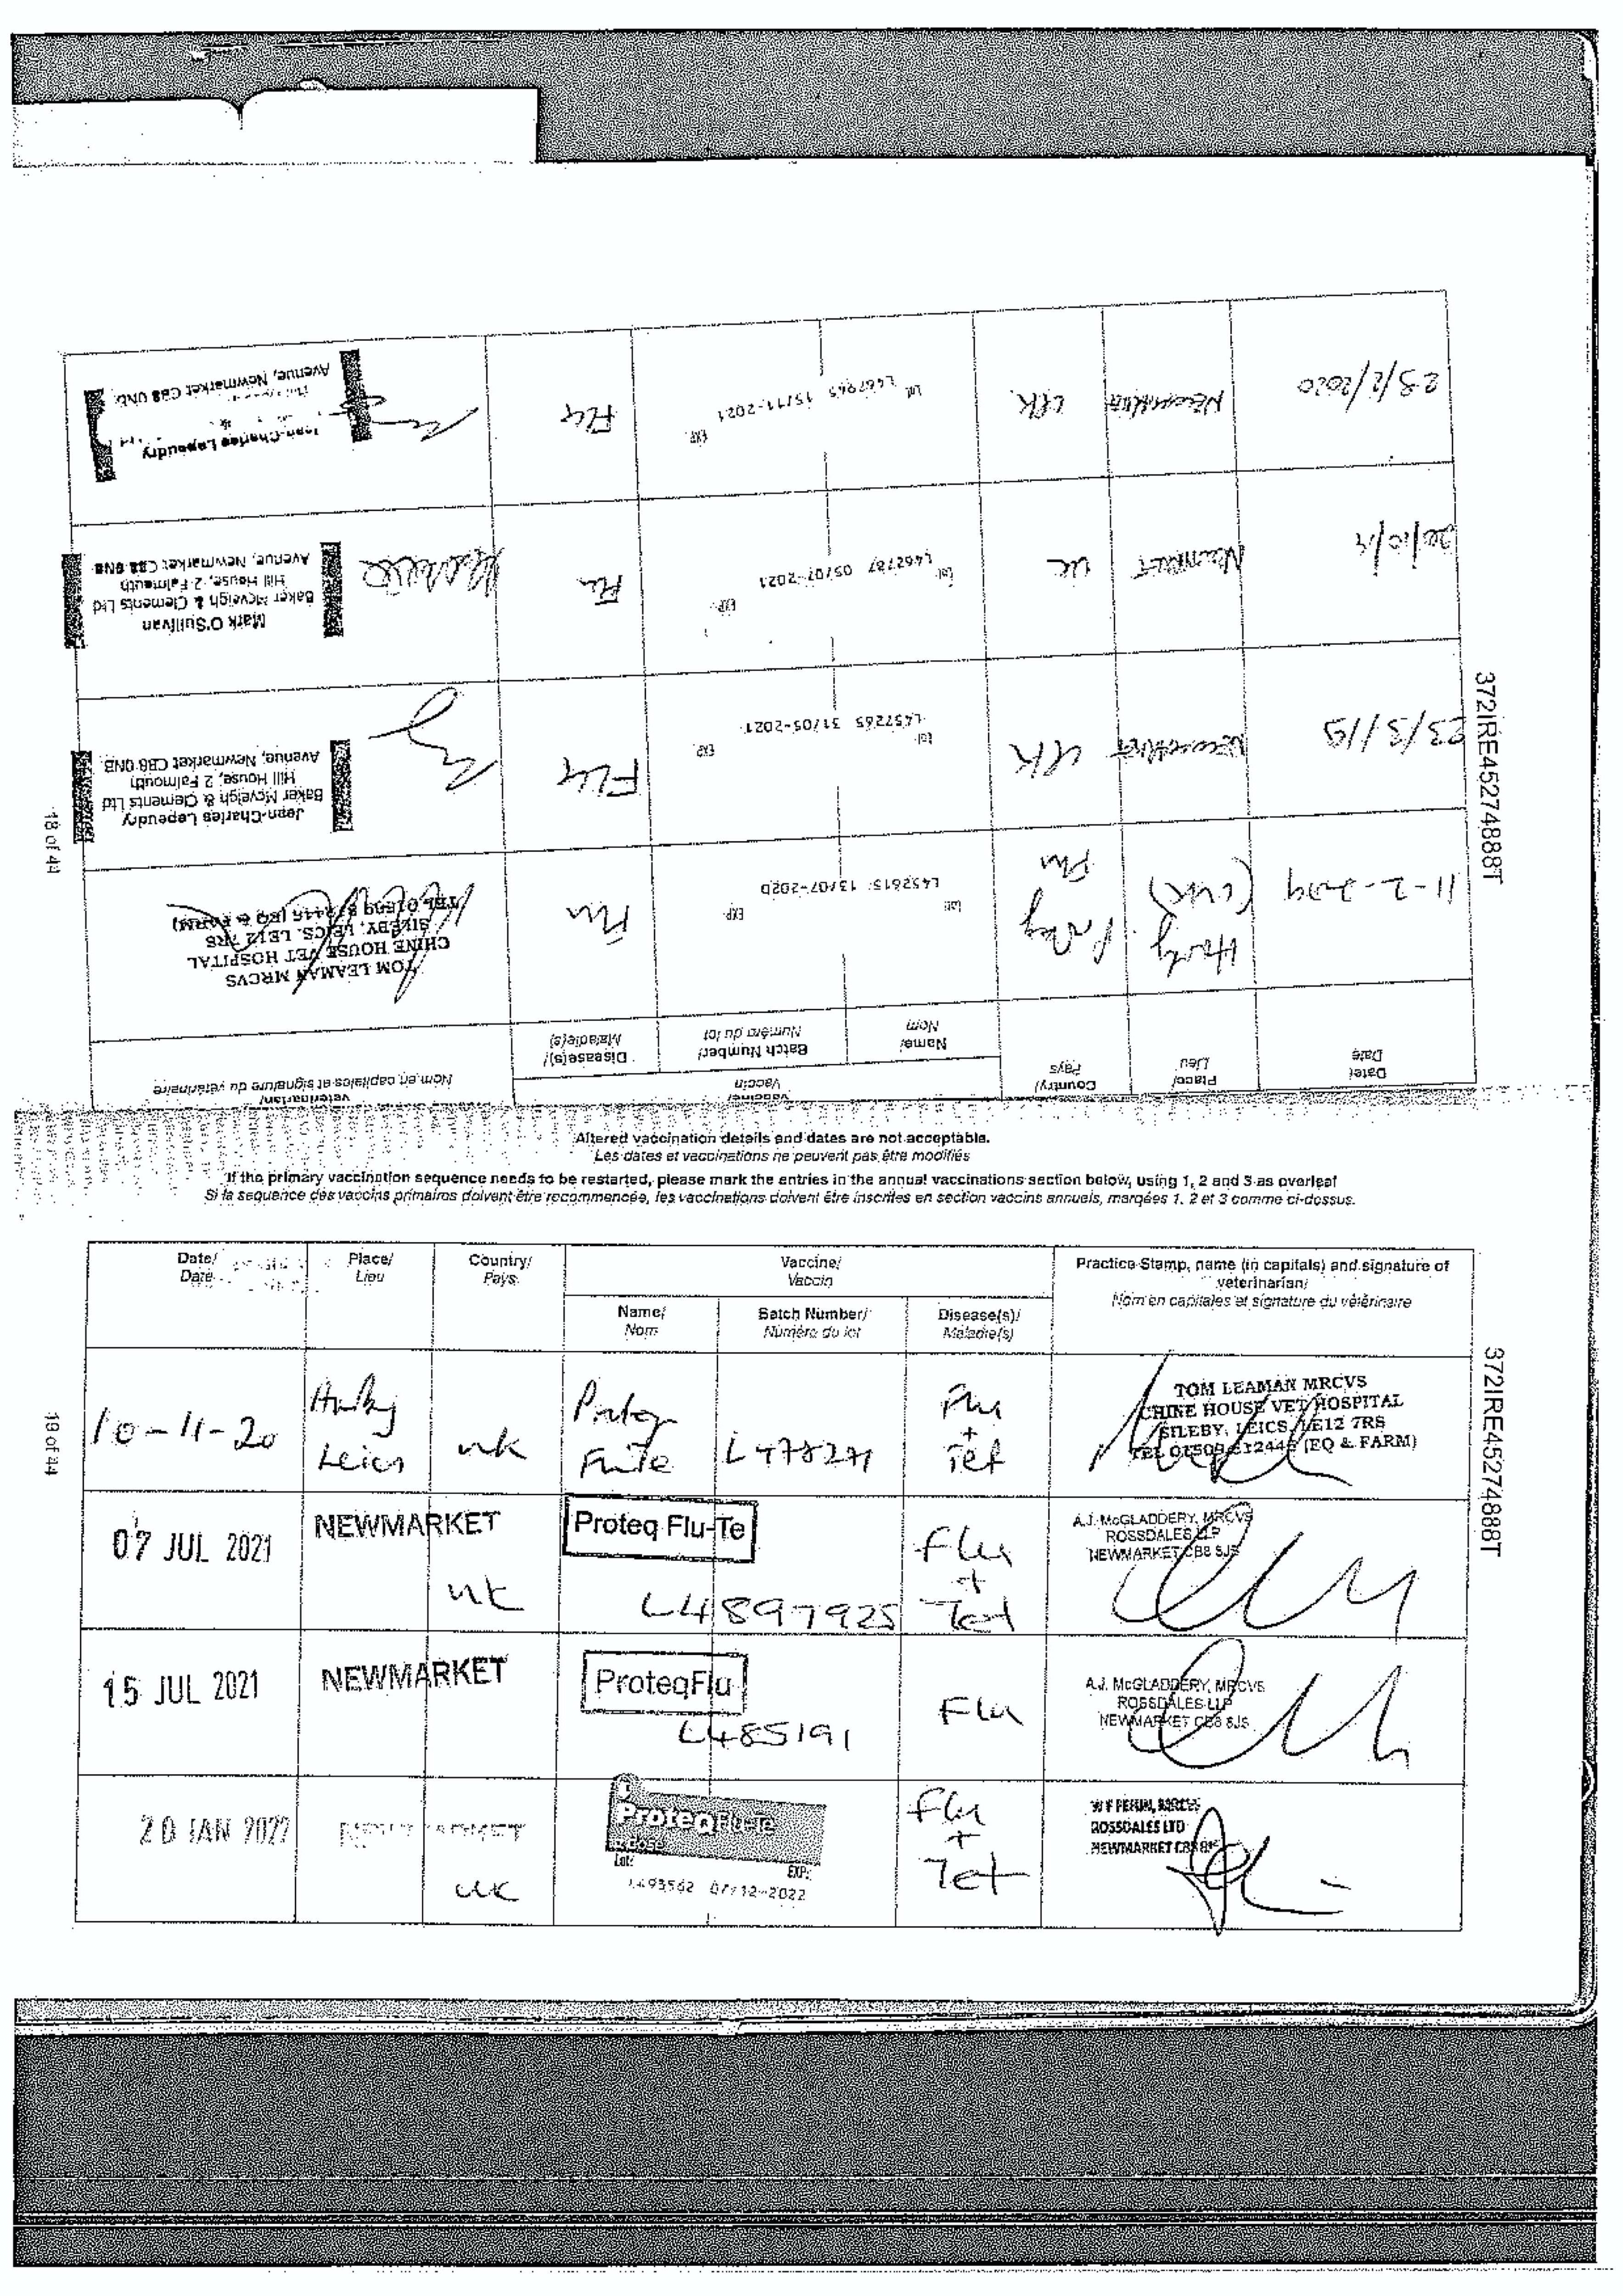 372IRE45274888T
18 of 44
Date/
Date
Place/
Lieu
Country/
Pays
Vaccine/
Vaccin
Name/
Nom
Batch Number/
Numéro du lot
Disease(s)/
Maladie(s)
veterinarian/
Nom en capitales et signature du vétérinaire
11-2-2019
(UK)
Flu
Lot: EXP:
L452615 13/07-2020
Flu
TOM LEAMAN MRCVS
CHINE HOUSE VET HOSPITAL
SILEBY, LEICS, LE12 7RS
TEL 01509 812445 (EQ & FARM)
23/3/19
Newmarket
UK
Lot: EXP:
L457265 31/05-2021
FLU
Jean-Charles Lepeudry
Baker Mcveigh & Clements Ltd
Hill House, 2 Falmouth
Avenue, Newmarket CB8 0NB
Newmarket
UK
Lot: EXP:
L462787 05/07-2021
Flu
Mark O'Sullivan
Baker Mcveigh & Clements Ltd
Hill House, 2 Falmouth
Avenue, Newmarket CB8 0NB
Newmarket
UK
Lot: EXP:
L467965 15/11-2021
Flu
Jean-Charles Lepeudry
Avenue, Newmarket CB8 0NB
Altered vaccination details and dates are not acceptable.
Les dates et vaccinations ne peuvent pas être modifiés
If the primary vaccination sequence needs to be restarted, please mark the entries in the annual vaccinations section below, using 1, 2 and 3 as overleaf
Si la sequence des vaccins primaires doivent être recommencée, les vaccinations doivent être inscrites en section vaccins annuels, marqées 1. 2 et 3 comme ci-dessus.
372IRE45274888T
19 of 44
Date/
Date
Place/
Lieu
Country/
Pays
Vaccine/
Vaccin
Practice Stamp, name (in capitals) and signature of
veterinarian/
Nom en capitales et signature du vétérinaire
Name/
Nom
Batch Number/
Numéro du lot
Disease(s)/
Maladie(s)
10-11-20
Leics
UK
L478271
Flu
+
Tet
TOM LEAMAN MRCVS
CHINE HOUSE VET HOSPITAL
SILEBY, LEICS, LE12 7RS
TEL 01509 812445 (EQ & FARM)
07 JUL 2021
NEWMARKET
UK
Proteq Flu-Te
L4897925
Flu
+
Tet
A.J. McGLADDERY, MRCVS
ROSSDALES LLP
NEWMARKET CB8 8JS
15 JUL 2021
NEWMARKET
ProteqFlu
L485191
Flu
A.J. McGLADDERY, MRCVS
ROSSDALES LLP
NEWMARKET CB8 8JS
20 JAN 2022
NEWMARKET
UK
ProteqFlu-Te
Lot: EXP:
L493562 07/12-2022
Flu
+
Tet
ROSSDALES LTD